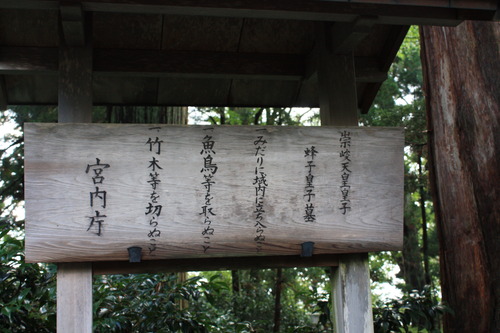 崇峻天皇皇子
蜂子皇子墓
一みだりに域内に立ち入らぬこと
一魚鳥等を取らぬこと
一竹木等を切らぬこと
宮内庁